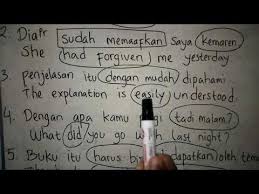 2. Diapr sudah memaafkan saya kemaren
She had Forgiven me yesterday
3. penjelasan itu dengan mudah dipaham
The explanation is easily understood
4. Dengan apa kamu gi tadi malam?
What did you go with last night?
5. Buku itu harus dapatkan oleh tem